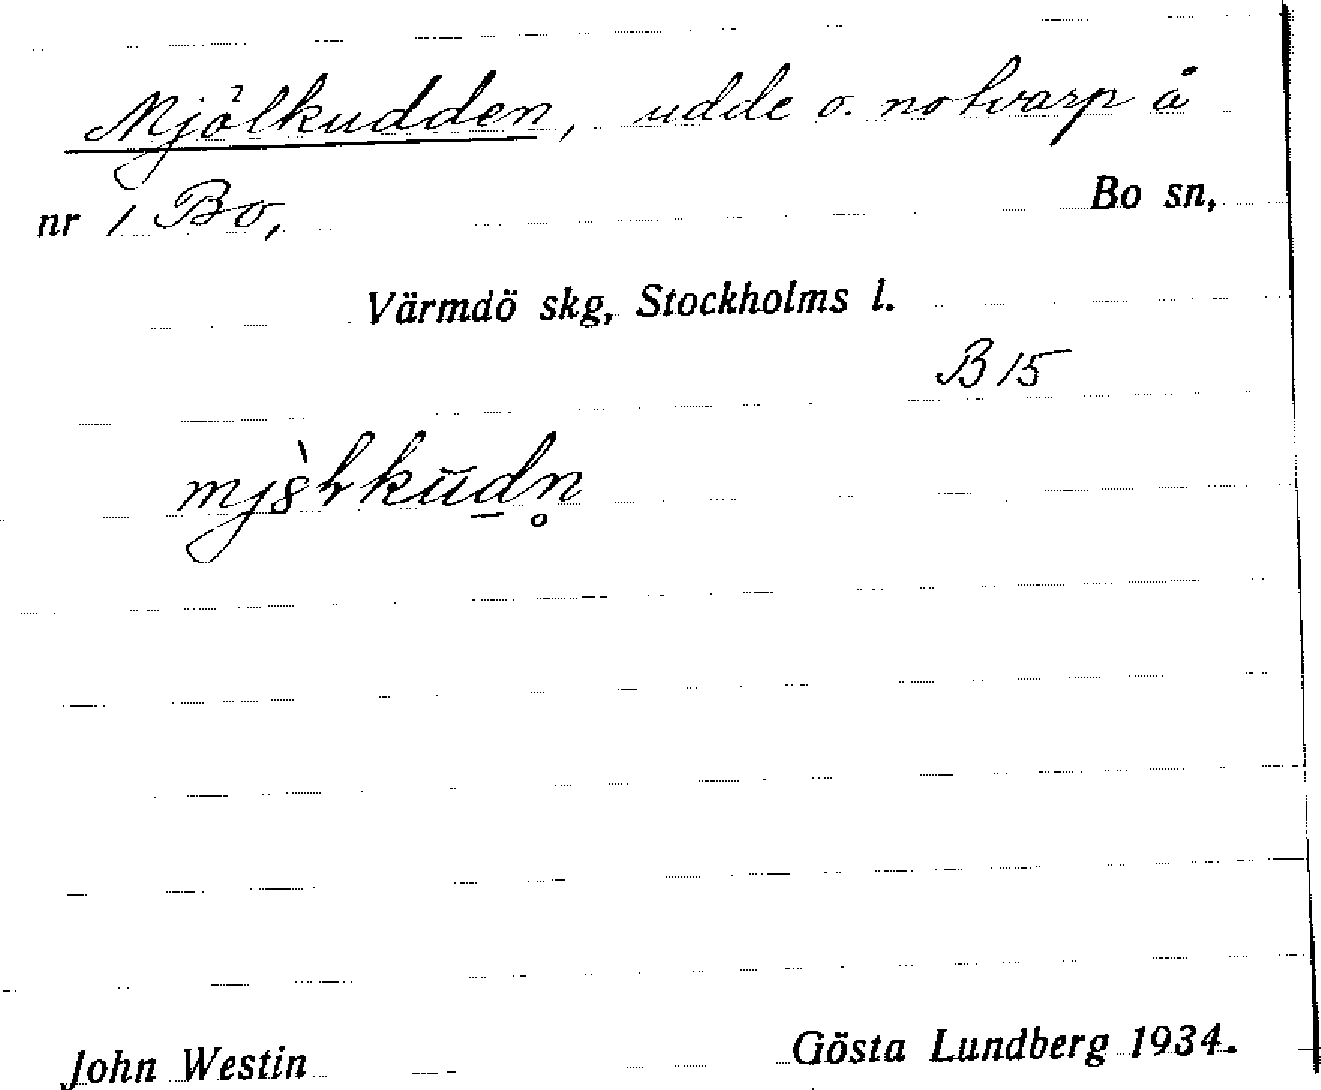 Mjölkudden, udde o. notvarp å
nr 1 Bo, Bo sn,
Värmdö skg, Stockholms l.
B 15
John Westin Gösta Lundberg 1934.